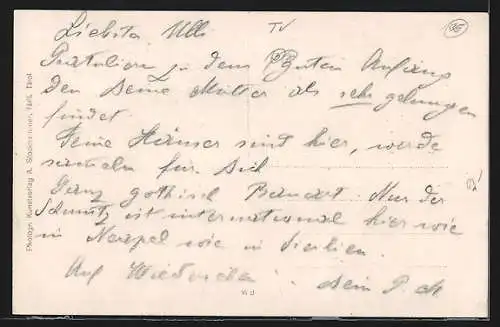 Liebste Ulli
Gratuliere zu dem Guten Anfang
Den Deine Mutter als sehr gelungen
findet
Feine Häuser sind hier, werde
sammeln für Dich
Ganz gothisch Bauart. Nur der
Schmutz ist international hier wie
in Neapel wie in Sicilien.
Auf Wiedersehen Dein P.
Photogr. Kunstverlag A. Stockhammer, Hall, Tirol.